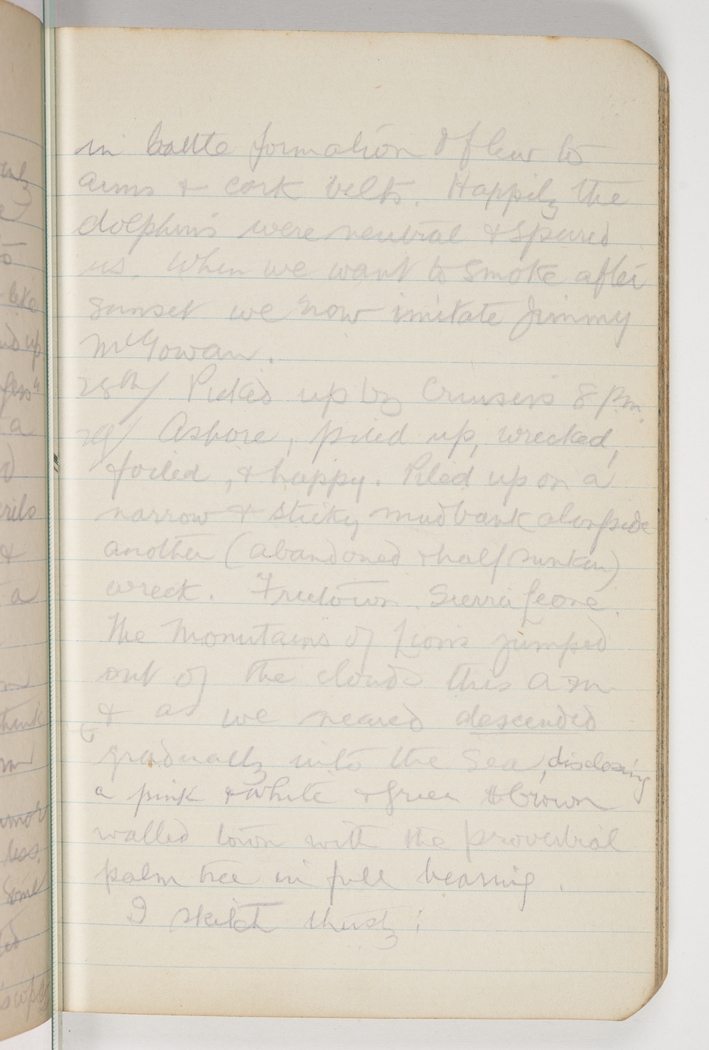 in battle formation & flew to
arms & cork belts. Happily the
dolphins were neutral & spared
us. When we want to smoke after
sunset we now imitate Jimmy
McGowan.
28th/ Picked up by Cruisers 8 pm.
29/ Ashore, piled up, wrecked,
foiled, & happy. Piled up on a
narrow & sticky mudbank alongside
another (abandoned & half sunken)
wreck. Freetown. Sierra Leone.
The Mountains of Lions jumped
out of the clouds this a m
& as we neared descended
gradually into the Sea, disclosing
a pink & white & green & brown
walled town with the proverbial
palm tree in full bearing.
I sketch thusly: